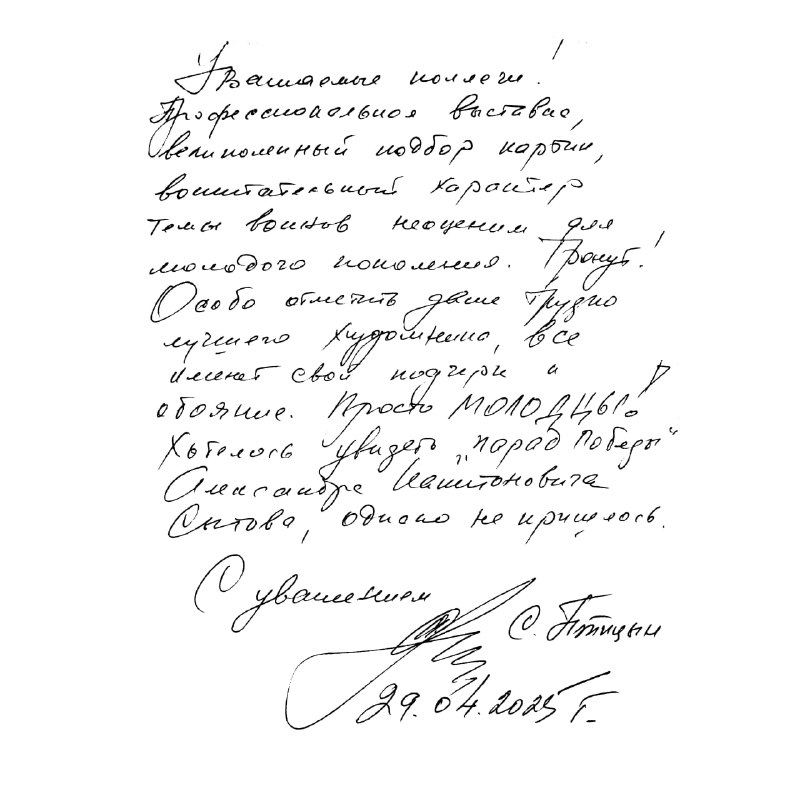 Уважаемые коллеги!
Профессиональная выставка,
великолепный подбор картин,
воспитательный характер
темы воинов неоценим для
молодого поколения. Тронут!
Особо отметить даже трудно
лучшего художника, все
имеют свой подчерк и
обояние. Просто МОЛОДЦЫ!
Хотелось увидеть "Парад Победы"
Александра Капитоновича
Сытова, однако не пришлось.
С уважением
С. Птицын
29.04.2025 г.